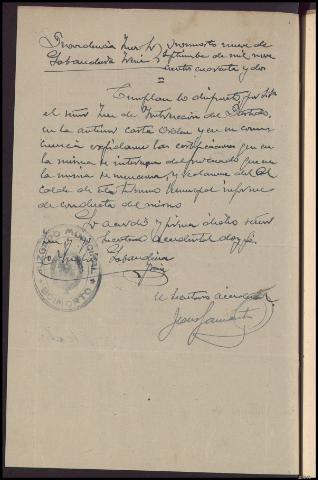 Providencia Juez Sr.
Labandeira
nueve de
septiembre de mil nove
cientos cuarenta y dos
=
Cumplase lo dispuesto por
el señor Juez de Instrucción del Partido,
en la anterior carta orden y en su conse
cuencia expidanse las certificaciones que en
la misma se interesan del procesado que en
la misma se menciona, y reclamese del Al
calde de este termino municipal informe
de conducta del mismo.
Lo acordó y firma dicho señor
Juez Secretario accidental doy fe.
Labandeira
El Secretario accidental
JUZGADO MUNICIPAL
BOIMORTO